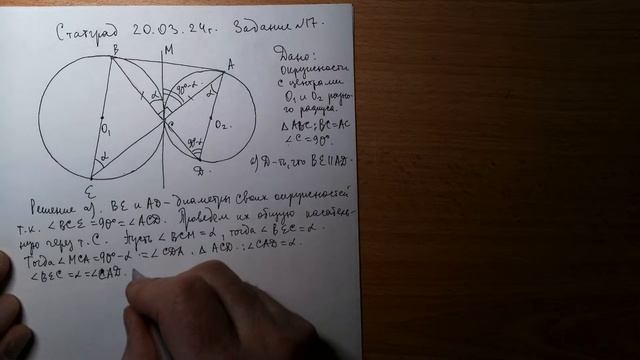 Статград 20.03.24г. Задание №17.
B M A
Дано:
Окружности
с центрами
O₁ и O₂ разно-
го радиуса.
△ABC; BC=AC
∠C=90°.
а) Д-ть, что BE∥AD.
α 90°-α α
O₁ C O₂
90°-α
α D
E
Решение а). BE и AD – диаметры своих окружностей
т.к. ∠BCE=90°=∠ACD. Проведем их общую касатель-
ную через т. C. Пусть ∠BCM=α, тогда ∠BEC=α.
Тогда ∠MCA=90°-α=∠CDA. △ACD: ∠CAD=α.
∠BEC=α=∠CAD.